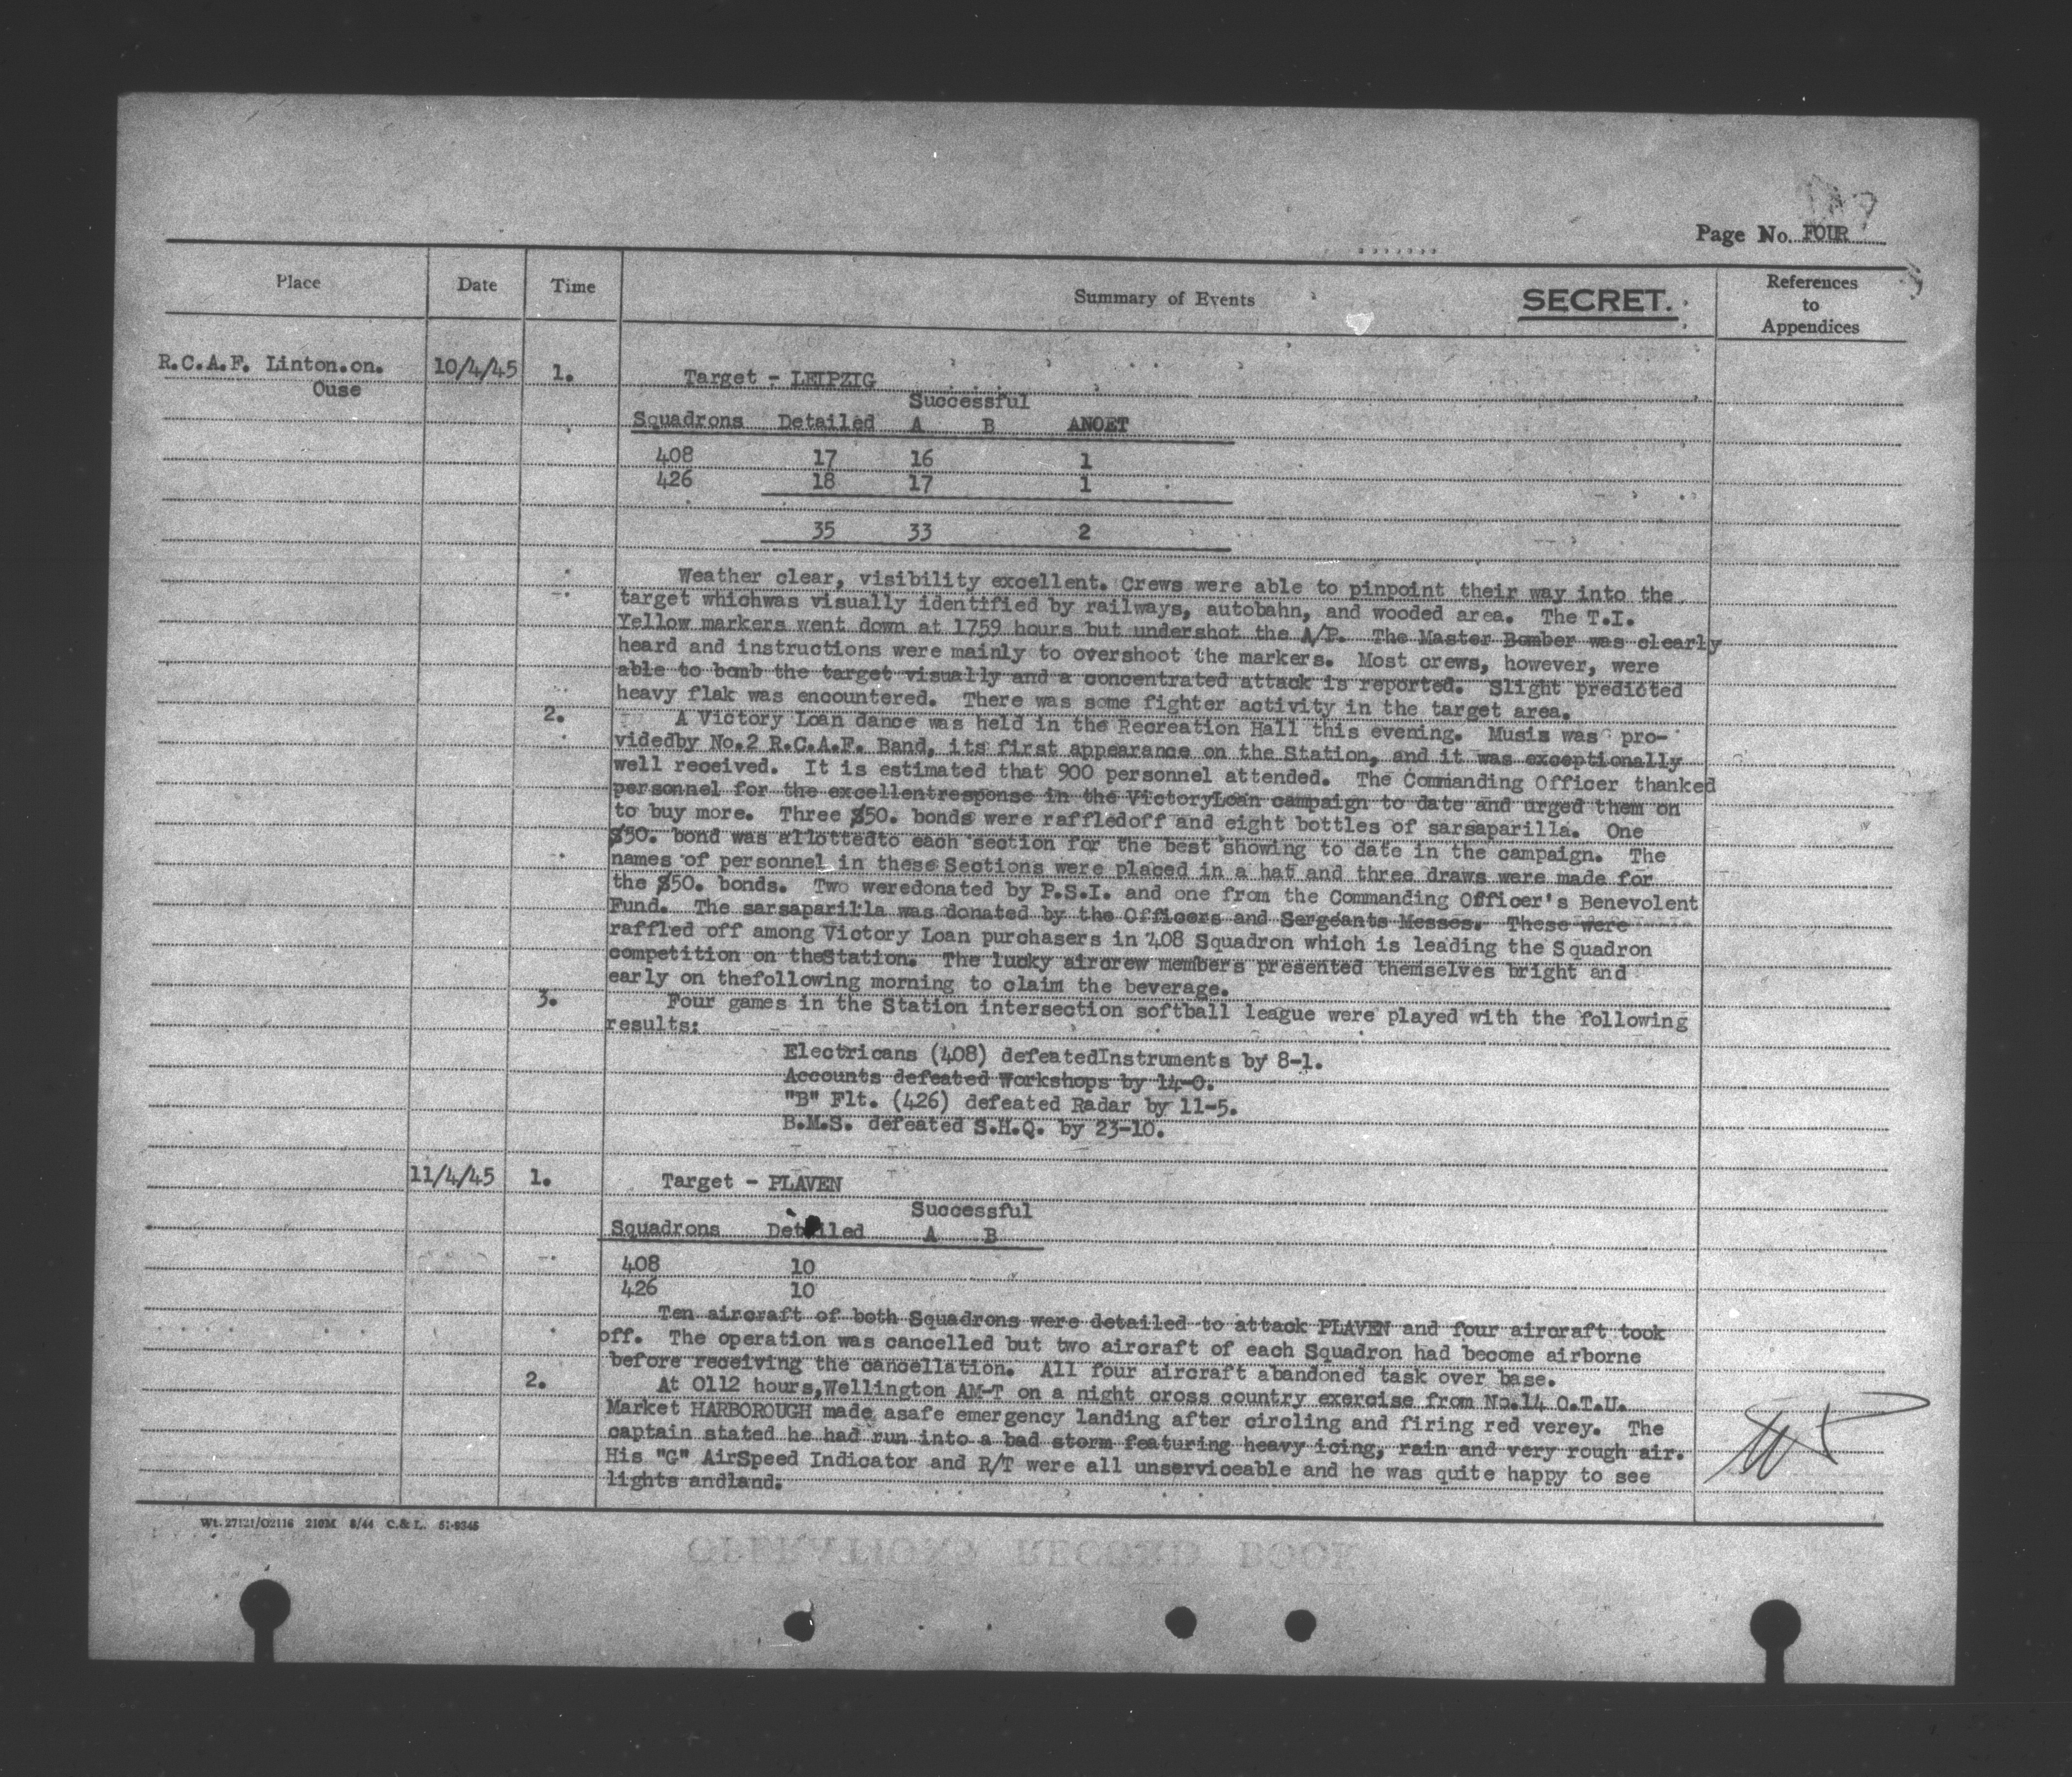 Page No. FOUR
Place Date Time Summary of Events SECRET. References to Appendices
R.C.A.F. Linton.on. 10/4/45 1. Target - LEIPZIG
Ouse
Successful
Squadrons Detailed A B ANOET
408 17 16 1
426 18 17 1
35 33 2
Weather clear, visibility excellent. Crews were able to pinpoint their way into the
target whichwas visually identified by railways, autobahn, and wooded area. The T.I.
Yellow markers went down at 1759 hours but undershot the A/P. The Master Bomber was clearly
heard and instructions were mainly to overshoot the markers. Most crews, however, were
able to bomb the target visually and a concentrated attack is reported. Slight predicted
heavy flak was encountered. There was some fighter activity in the target area.
2. A Victory Loan dance was held in the Recreation Hall this evening. Musis was pro-
videdby No.2 R.C.A.F. Band, its first appearance on the Station, and it was exceptionally
well received. It is estimated that 900 personnel attended. The Commanding Officer thanked
personnel for the excellentresponse in the VictoryLoan campaign to date and urged them on
to buy more. Three $50. bonds were raffledoff and eight bottles of sarsaparilla. One
$50. bond was allottedto each section for the best showing to date in the campaign. The
names of personnel in these Sections were placed in a hat and three draws were made for
the $50. bonds. Two weredonated by P.S.I. and one from the Commanding Officer's Benevolent
Fund. The sarsaparilla was donated by the Officers and Sergeants Messes. These were
raffled off among Victory Loan purchasers in 408 Squadron which is leading the Squadron
competition on theStation. The lucky aircrew members presented themselves bright and
early on thefollowing morning to claim the beverage.
3. Four games in the Station intersection softball league were played with the following
results:
Electricans (408) defeatedInstruments by 8-1.
Accounts defeated Workshops by 14-0.
"B" Flt. (426) defeated Radar by 11-5.
B.M.S. defeated S.H.Q. by 23-10.
11/4/45 1. Target - PLAVEN
Successful
Squadrons Detailed A B
408 10
426 10
Ten aircraft of both Squadrons were detailed to attack PLAVEN and four aircraft took
off. The operation was cancelled but two aircraft of each Squadron had become airborne
before receiving the cancellation. All four aircraft abandoned task over base.
2. At 0112 hours,Wellington AM-T on a night cross country exercise from No.14 O.T.U.
Market HARBOROUGH made asafe emergency landing after circling and firing red verey. The
captain stated he had run into a bad storm featuring heavy icing, rain and very rough air.
His "G" AirSpeed Indicator and R/T were all unserviceable and he was quite happy to see
lights andland.
Wt. 27121/O2116 210M 8/44 C.& L. 51-9345
OPERATIONS RECORD BOOK